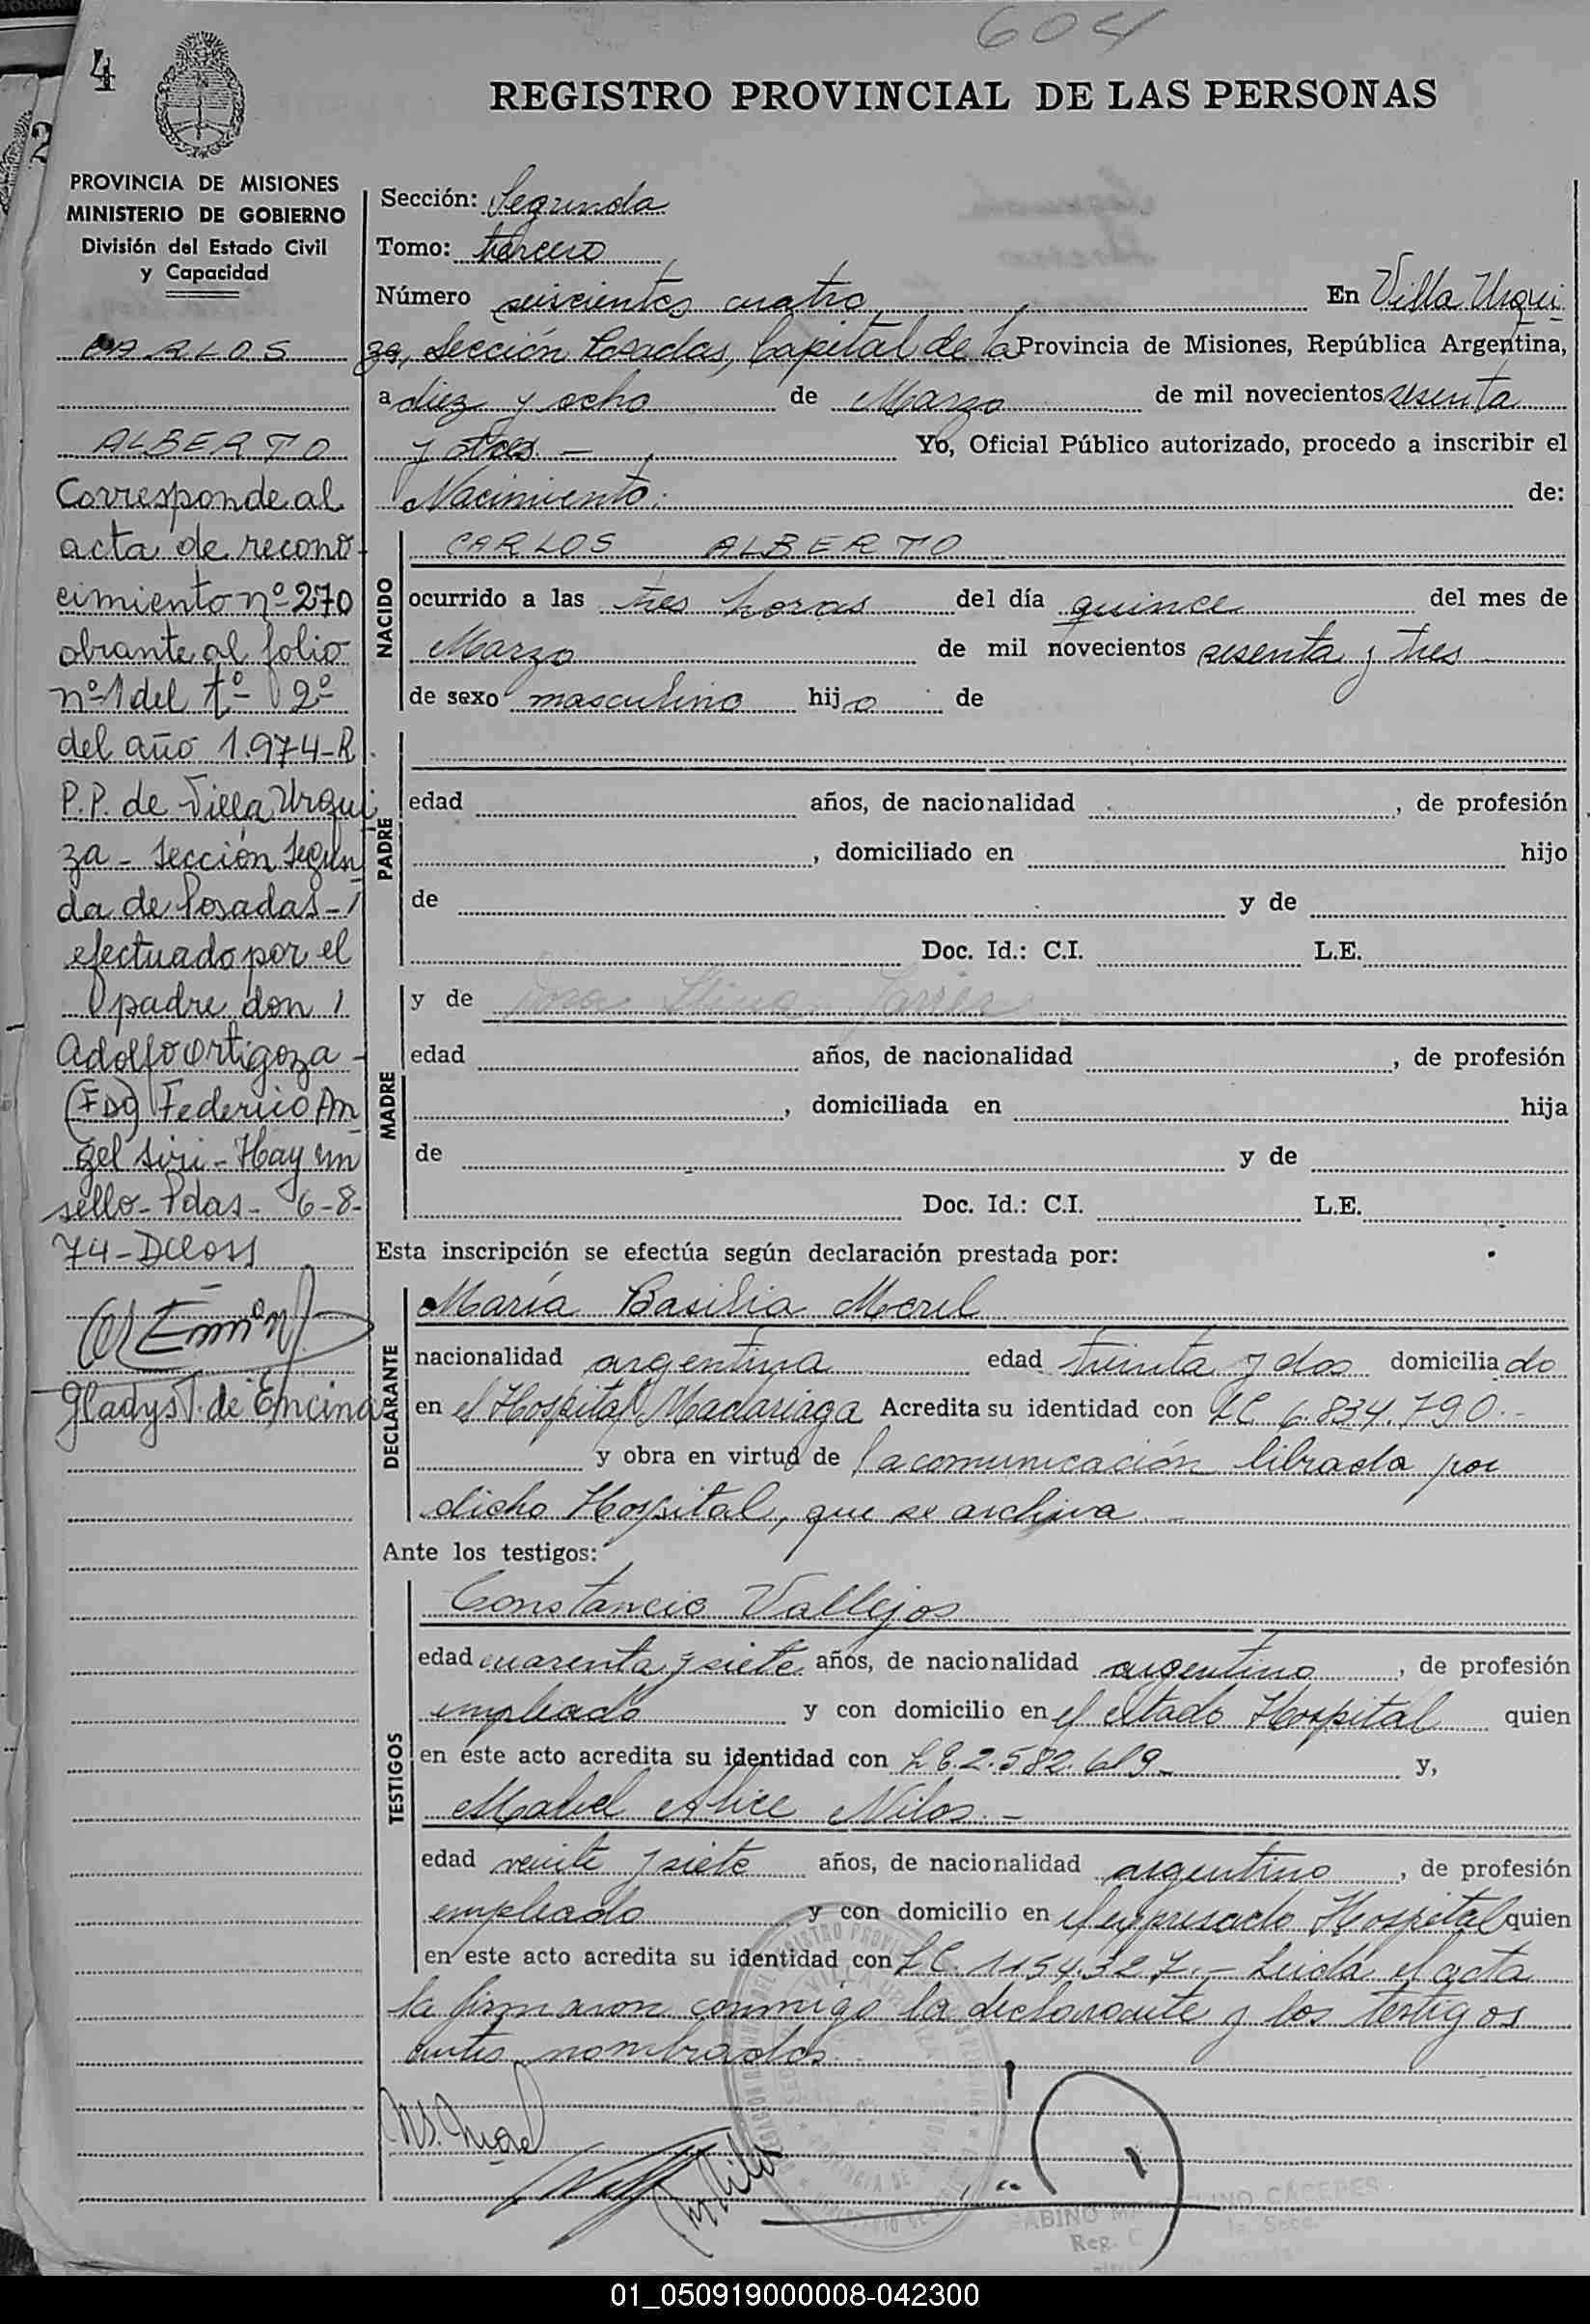 604
4
REGISTRO PROVINCIAL DE LAS PERSONAS
PROVINCIA DE MISIONES
MINISTERIO DE GOBIERNO
División del Estado Civil
y Capacidad
CARLOS
ALBERTO
Corresponde al
acta de recono
cimiento nº 270
obrante al folio
nº 1 del tº 2º
del año 1.974-R
P.P. de Villa Urqui
za - Sección Segun
da de Posadas -
efectuado por el
padre don
Adolfo Ortigoza -
(Fdo) Federico An
gel Siri - Hay un
sello - Pdas - 6-8-
74 -
Gladys T. de Encina
Sección: Segunda
Tomo: tercero
Número seiscientos cuatro En Villa Urqui
za, Sección Posadas, Capital de la Provincia de Misiones, República Argentina,
a diez y ocho de Marzo de mil novecientos sesenta
y tres. - Yo, Oficial Público autorizado, procedo a inscribir el
Nacimiento. de:
NACIDO
CARLOS ALBERTO
ocurrido a las tres horas del día quince del mes de
Marzo de mil novecientos sesenta y tres
de sexo masculino hijo de
PADRE
edad años, de nacionalidad , de profesión
, domiciliado en hijo
de y de
Doc. Id.: C.I. L.E.
MADRE
y de
edad años, de nacionalidad , de profesión
, domiciliada en hija
de y de
Doc. Id.: C.I. L.E.
Esta inscripción se efectúa según declaración prestada por:
DECLARANTE
María Basilia
nacionalidad argentina edad treinta y dos domiciliado
en el Hospital Madariaga Acredita su identidad con LC 6.834.790.-
y obra en virtud de la comunicación librada por
dicho Hospital, que se archiva. -
Ante los testigos:
TESTIGOS
Constancio Vallejos
edad cuarenta y siete años, de nacionalidad argentino , de profesión
empleado y con domicilio en el citado Hospital quien
en este acto acredita su identidad con L E. 2.582.619 - y,
Mabel Alice Nilos. -
edad veinte y siete años, de nacionalidad argentino , de profesión
empleado y con domicilio en el expresado Hospital quien
en este acto acredita su identidad con L C. 1154.327. - Leída el acta
la firmaron conmigo la declarante y los testigos
antes nombrados.
CACERES
01_050919000008-042300